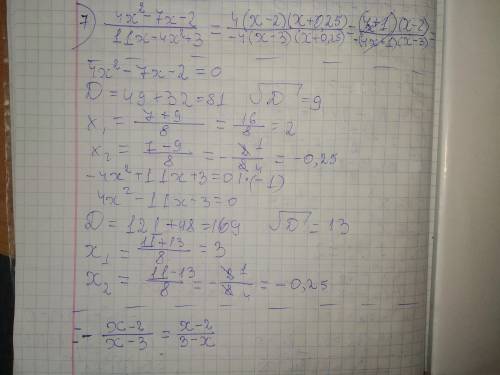 7) (4x²-7x-2)/(11x-4x²+3) = (4(x-2)(x+0,25))/(-4(x-3)(x+0,25)) = ((4x+1)(x-2))/(-(4x+1)(x-3)) =
4x²-7x-2=0
D=49+32=81 √D=9
x₁ = (7+9)/8 = 16/8 = 2
x₂ = (7-9)/8 = -2/8 = -0,25
-4x²+11x+3=0 |·(-1)
4x²-11x-3=0
D=121+48=169 √D=13
x₁ = (11+13)/8 = 3
x₂ = (11-13)/8 = -2/8 = -0,25
= -(x-2)/(x-3) = (x-2)/(3-x)